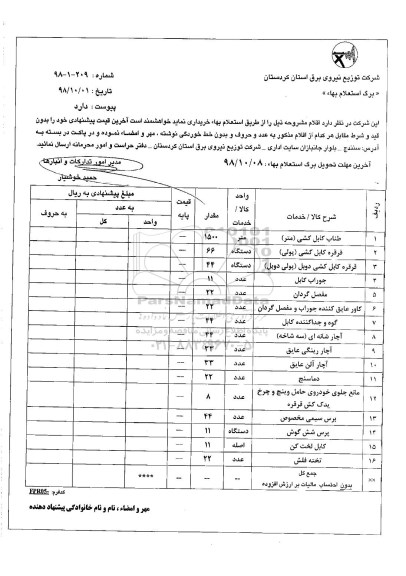 شرکت توزیع نیروی برق استان کردستان
« برگ استعلام بهاء »
شماره : ۲۰۹-۱-۹۸
تاریخ : ۹۸/۱۰/۰۱
پیوست : دارد
این شرکت در نظر دارد اقلام مشروحه ذیل را از طریق استعلام بهاء خریداری نماید خواهشمند است آخرین قیمت پیشنهادی خود را بدون
قید و شرط مقابل هر کدام از اقلام مذکور به عدد و حروف و بدون خط خوردگی نوشته ، مهر و امضاء نموده و در پاکت در بسته به
آدرس: سنندج _ بلوار جانبازان سایت اداری _ شرکت توزیع نیروی برق استان کردستان _ دفتر حراست و امور محرمانه ارسال نمائید.
آخرین مهلت تحویل برگ استعلام بهاء : ۹۸/۱۰/۰۸
مدیر امور تدارکات و انبارها
حمید خوشیار
ردیف | شرح کالا / خدمات | واحد کالا / خدمات | مقدار | قیمت پایه | مبلغ پیشنهادی به ریال
به عدد | به حروف
واحد | کل
۱ | طناب کابل کشی (متر) | متر | ۱۵۰۰ | —
۲ | قرقره کابل کشی (پولی) | دستگاه | ۶۶ | —
۳ | قرقره کابل کشی دوبل (پولی دوبل) | دستگاه | ۴۴ | —
۴ | جوراب کابل | عدد | ۱۱ | —
۵ | مفصل گردان | عدد | ۲۲ | —
۶ | کاور عایق کننده جوراب و مفصل گردان | عدد | ۲۲ | —
۷ | گوه و جداکننده کابل | عدد | ۴۴ | —
۸ | آچار شانه ای (سه شاخه) | عدد | —
۹ | آچار رینگی عایق | عدد | ۳۳ | —
۱۰ | آچار آلن عایق | عدد | ۳۳ | —
۱۱ | دماسنج | عدد | ۲۲ | —
۱۲ | مانع جلوی خودروی حامل وینچ و چرخ یدک کش قرقره | عدد | ۸ | —
۱۳ | پرس سیمی مخصوص | عدد | ۴۴ | —
۱۴ | پرس شش گوش | دستگاه | ۱۱ | —
۱۵ | کابل لخت کن | اصله | ۱۱ | —
۱۶ | تخته فلش | عدد | ۲۲ | —
** | جمع کل بدون احتساب مالیات بر ارزش افزوده | -- | -- | — | ****
ParsNamadData
۰۲۱-۸۸۳۴۹۶۷۰-۵
کدفرم: FPR05
مهر و امضاء ، نام و نام خانوادگی پیشنهاد دهنده